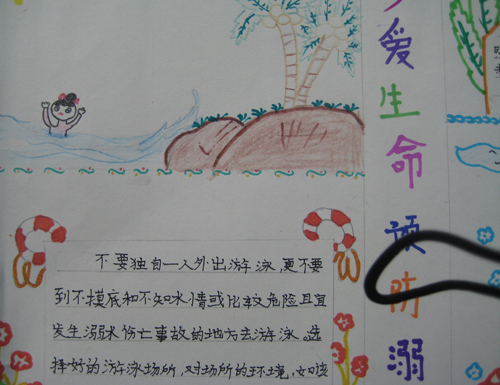 爱生命预防溺
不要独自一人外出游泳,更不要
到不摸底和不知水情或比较危险且宜
发生溺水伤亡事故的地方去游泳。选
择好的游泳场所,对场所的环境,如该